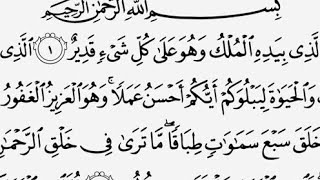 بِسْمِ ٱللَّهِ ٱلرَّحْمَٰنِ ٱلرَّحِيمِ
لَّذِى بِيَدِهِ ٱلْمُلْكُ وَهُوَ عَلَىٰ كُلِّ شَىْءٍ قَدِيرٌ ۝١ ٱلَّذِى
وَٱلْحَيَوٰةَ لِيَبْلُوَكُمْ أَيُّكُمْ أَحْسَنُ عَمَلًا ۚ وَهُوَ ٱلْعَزِيزُ ٱلْغَفُورُ
خَلَقَ سَبْعَ سَمَٰوَٰتٍ طِبَاقًا ۖ مَّا تَرَىٰ فِى خَلْقِ ٱلرَّحْمَٰنِ